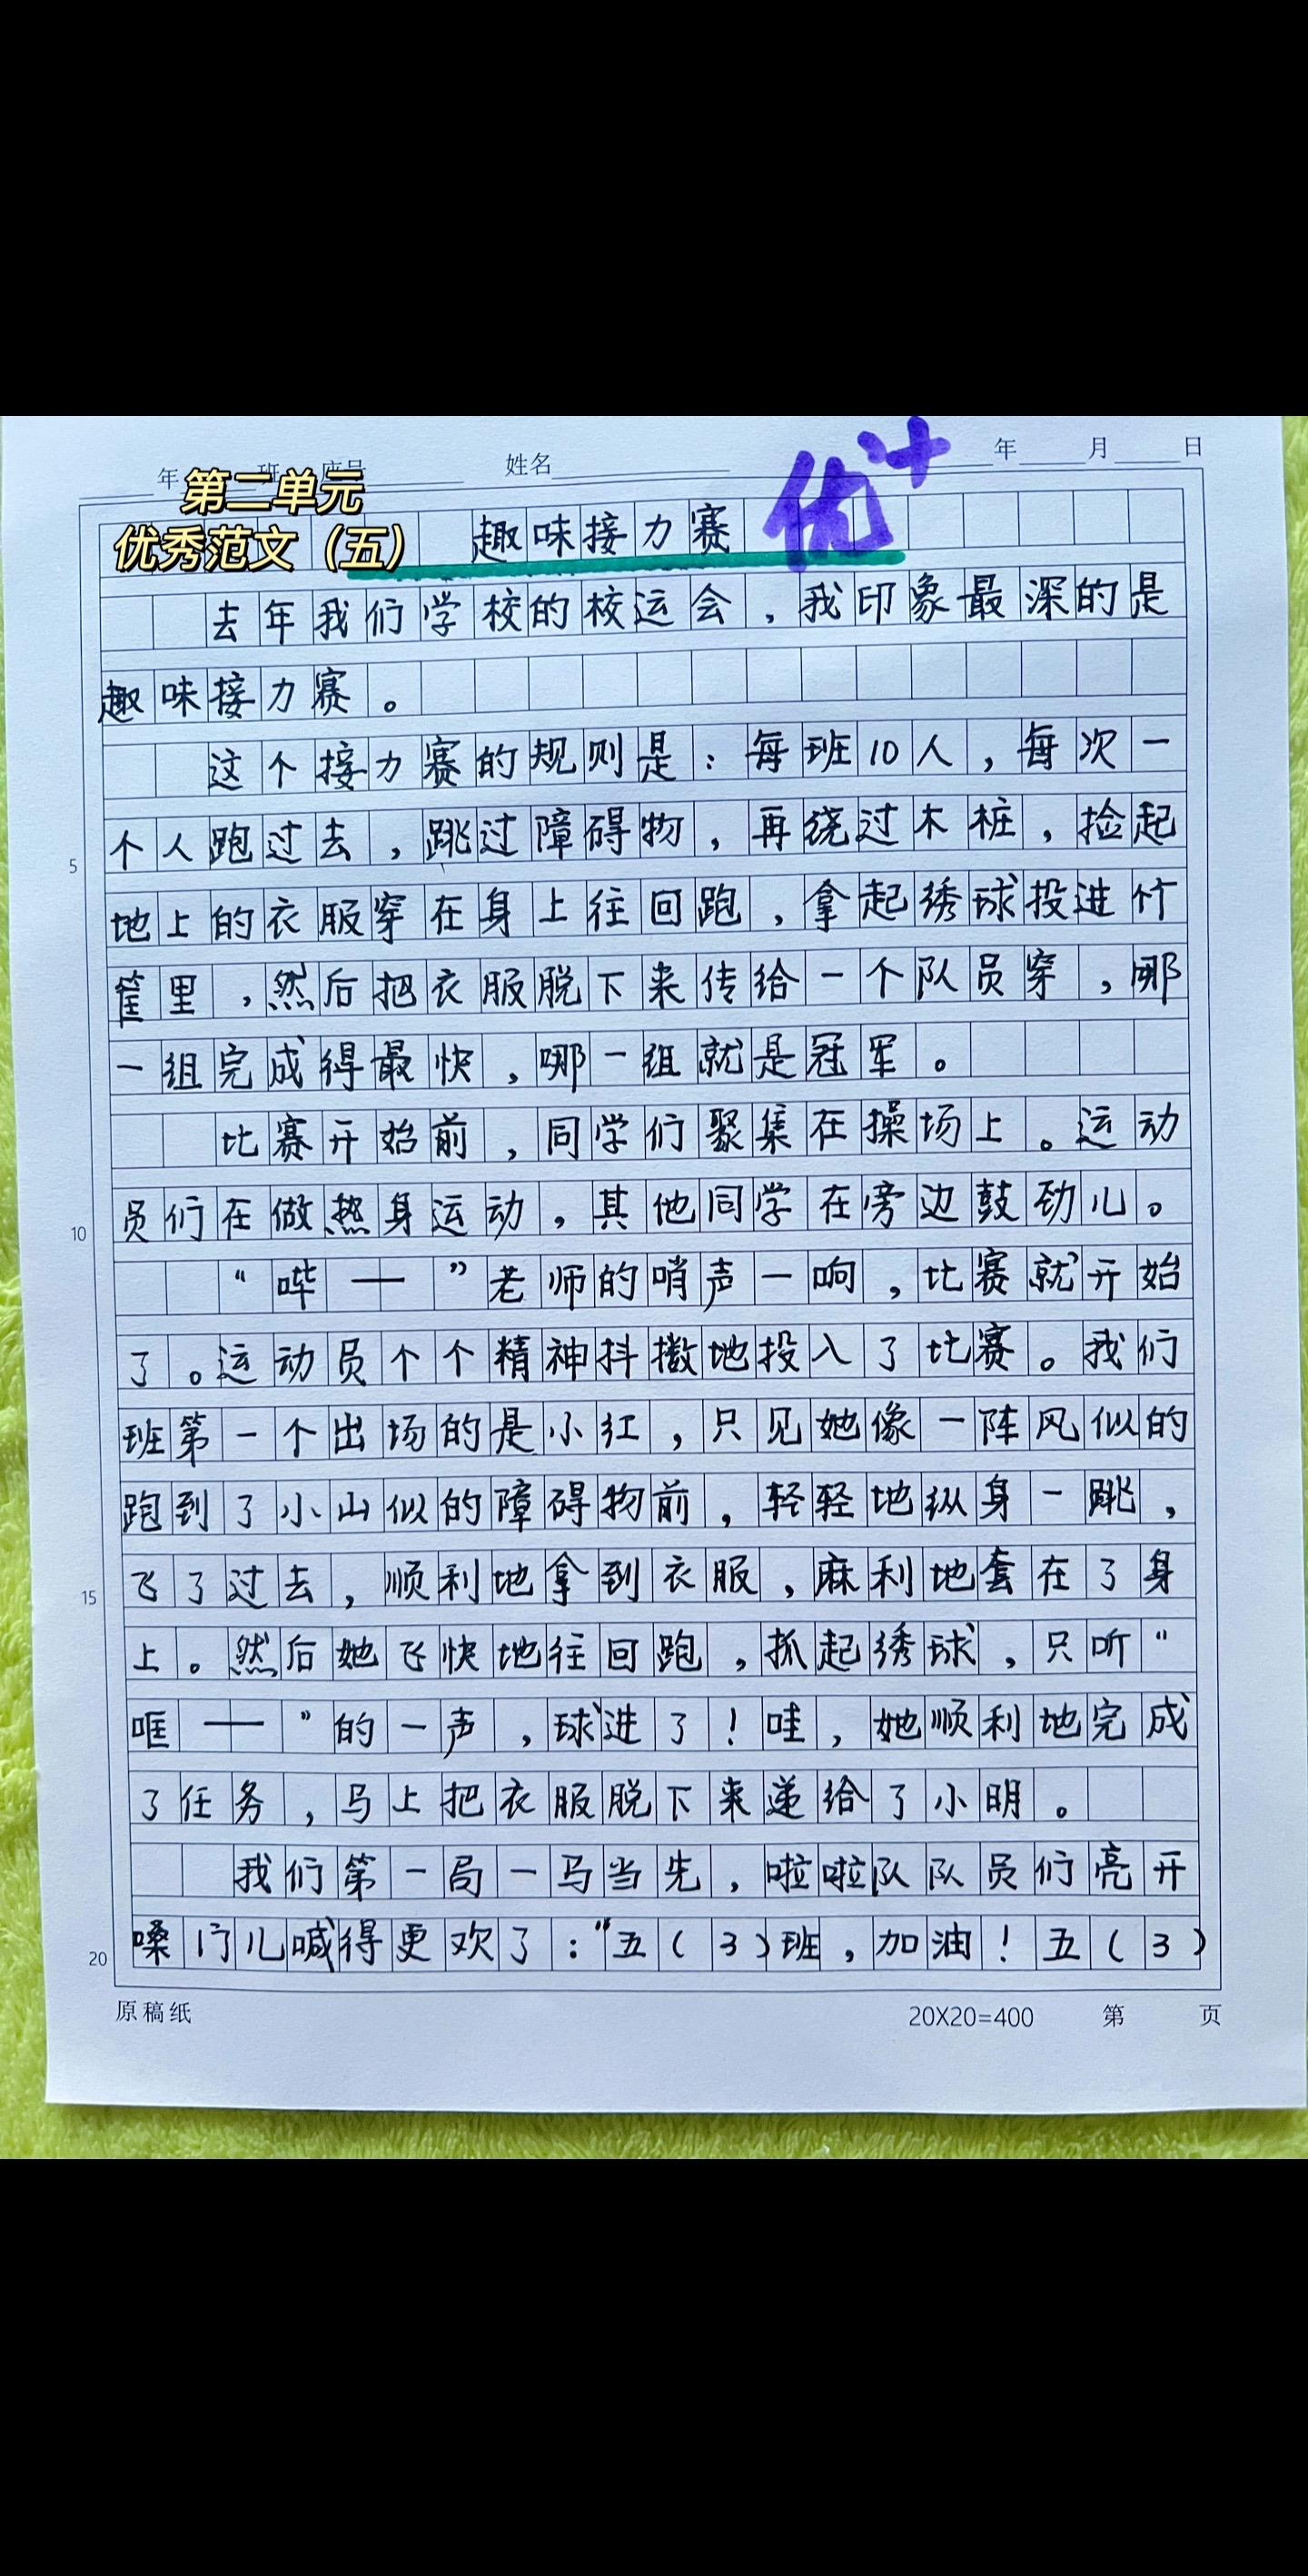 年 班 座号 姓名 年 月 日
第二单元
优秀范文（五）
优+
趣味接力赛
去年我们学校的校运会，我印象最深的是
趣味接力赛。
这个接力赛的规则是：每班10人，每次一
个人跑过去，跳过障碍物，再绕过木桩，捡起
5
地上的衣服穿在身上往回跑，拿起绣球投进竹
筐里，然后把衣服脱下来传给一个队员穿，哪
一组完成得最快，哪一组就是冠军。
比赛开始前，同学们聚集在操场上。运动
员们在做热身运动，其他同学在旁边鼓劲儿。
10
“哔——”老师的哨声一响，比赛就开始
了。运动员个个精神抖擞地投入了比赛。我们
班第一个出场的是小红，只见她像一阵风似的
跑到了小山似的障碍物前，轻轻地纵身一跳，
飞了过去，顺利地拿到衣服，麻利地套在了身
15
上。然后她飞快地往回跑，抓起绣球，只听“
哐——”的一声，球进了！哇，她顺利地完成
了任务，马上把衣服脱下来递给了小明。
我们第一局一马当先，啦啦队队员们亮开
嗓门儿喊得更欢了：“五（3）班，加油！五（3）
20
原稿纸 20X20=400 第 页